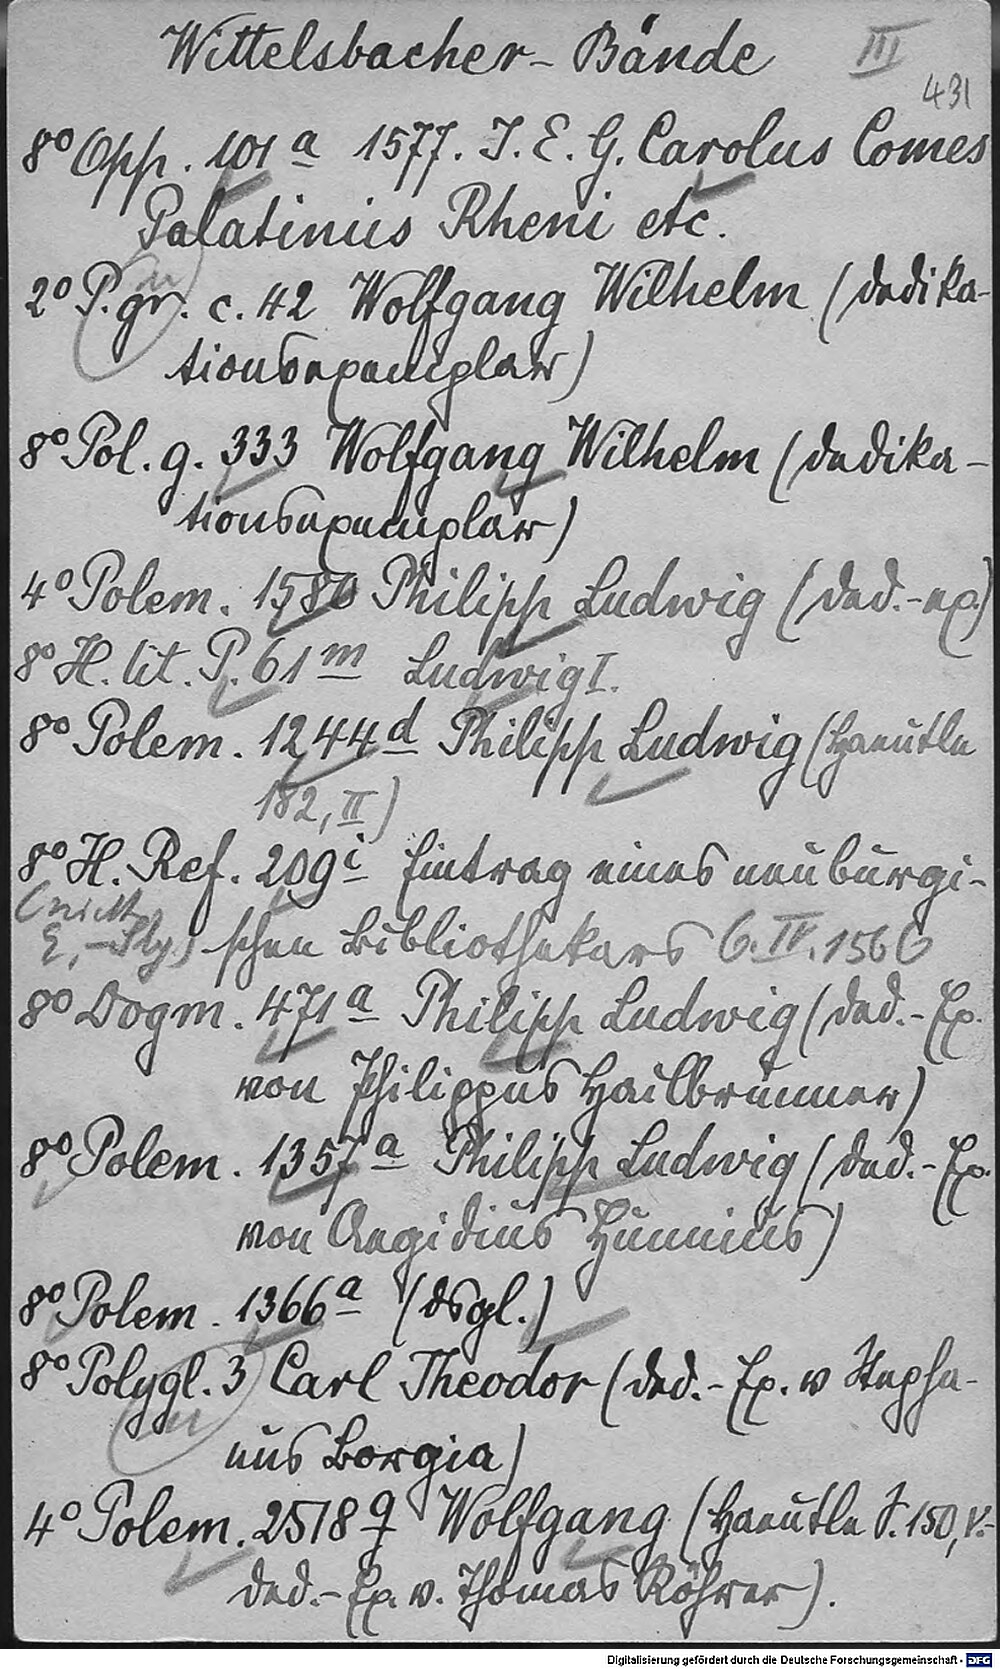 Wittelsbacher-Bände III
431
8° Opp. 101 a 1577. I. E. G. Carolus Comes
Palatinus Rheni etc.
2° P. gr. c. 42 Wolfgang Wilhelm (Dedika-
tionsexemplar)
8° Pol. g. 333 Wolfgang Wilhelm (Dedika-
tionsexemplar)
4° Polem. 1580 Philipp Ludwig (Ded.-ex.)
8° H. lit. P. 61 m Ludwig I.
8° Polem. 1244 d Philipp Ludwig (Haeutle
182, II)
8° H. Ref. 209 i Eintrag eines neuburgi-
(nicht
schen Bibliothekars 6. IV. 1566
8° Dogm. 471 a Philipp Ludwig (Ded.-Ex.
von Philippus Hailbrunner)
8° Polem. 1357 a Philipp Ludwig (Ded.-Ex.
von Aegidius Hunnius)
8° Polem. 1366 a (dsgl.)
8° Polygl. 3 Carl Theodor (Ded.-Ex. v Stepha-
nus Borgia)
4° Polem. 2518 q Wolfgang (Haeutle S. 150, V.-
Ded.-Ex. v. Thomas Röhrer).
Digitalisierung gefördert durch die Deutsche Forschungsgemeinschaft - DFG